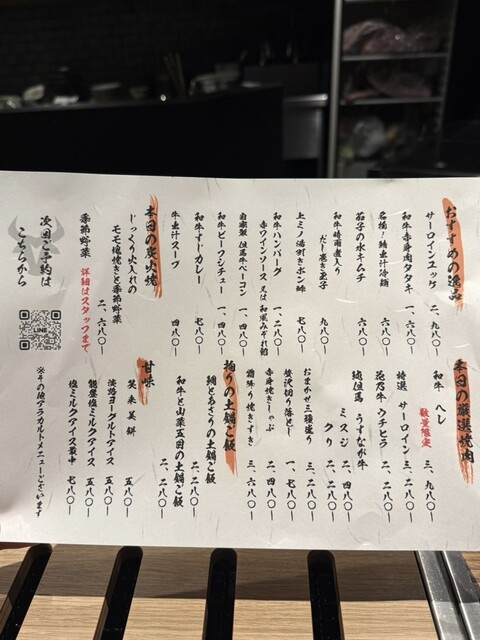 おすすめの逸品
サーロインユッケ 二、九八〇ー
和牛赤身肉タタキ 一、六八〇ー
名物！出汁冷麺 八〇ー
茄子の水キムチ 六八〇ー
和牛時雨煮入り
だし巻き玉子 九八〇ー
上ミノ湯引きポン酢 七八〇ー
和牛ハンバーグ 一、二八〇ー
赤ワインソース 又は 和風みぞれ餡
自家製 但馬牛ベーコン 一、四八〇ー
和牛ビーフシチュー 一、四八〇ー
和牛すじカレー 七八〇ー
牛出汁スープ 四八〇ー
本日の炭火焼
じっくり火入れの
モモ塊焼きと季節野菜 二、六八〇ー
季節野菜 詳細はスタッフまで
次回ご予約は
こちらから
LINE
本日の厳選焼肉
和牛 ヘレ 三、九八〇ー
数量限定
特選 サーロイン 三、二八〇ー
花乃牛 ウチヒラ 二、二八〇ー
純但馬 うすなが牛
ミスジ 二、四八〇ー
クリ 二、二八〇ー
おまかせ三種盛り 三、二八〇ー
贅沢切り落とし 一、七八〇ー
赤身焼きしゃぶ 二、四八〇ー
霜降り焼きすき 三、六八〇ー
拘りの土鍋ご飯
鯛とあさりの土鍋ご飯 二、二八〇ー
和牛と山菜五目の土鍋ご飯 二、二八〇ー
甘味
笑来美餅 五八〇ー
淡路ヨーグルトアイス 五八〇ー
能登塩ミルクアイス 五八〇ー
塩ミルクアイス最中 七八〇ー
※その他アラカルトメニューございます